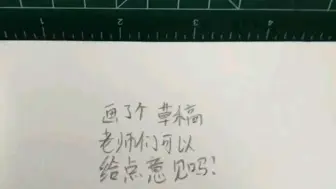 画了个 草稿
老师们可以
给点意见吗！